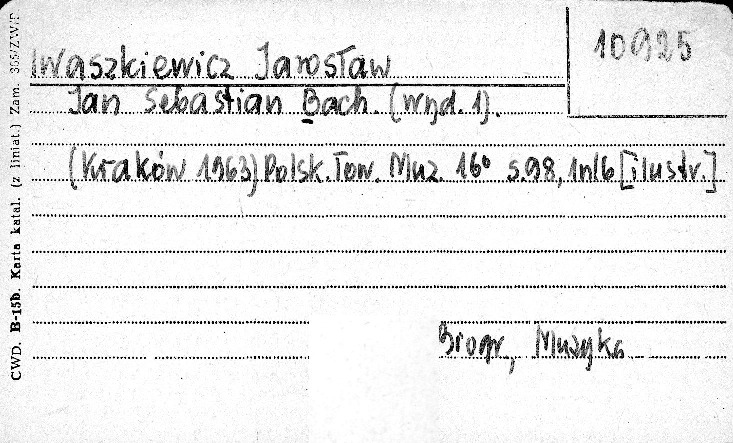 10925
Iwaszkiewicz Jarosław
Jan Sebastian Bach. (Wyd. 1).
(Kraków 1963) Polsk. Tow. Muz. 16° s.98, 1nlb [ilustr.]
Biogr, Muzyka
CWD. B-15b. Karta katal. (z liniat.) Zam. 365/Z/W/P